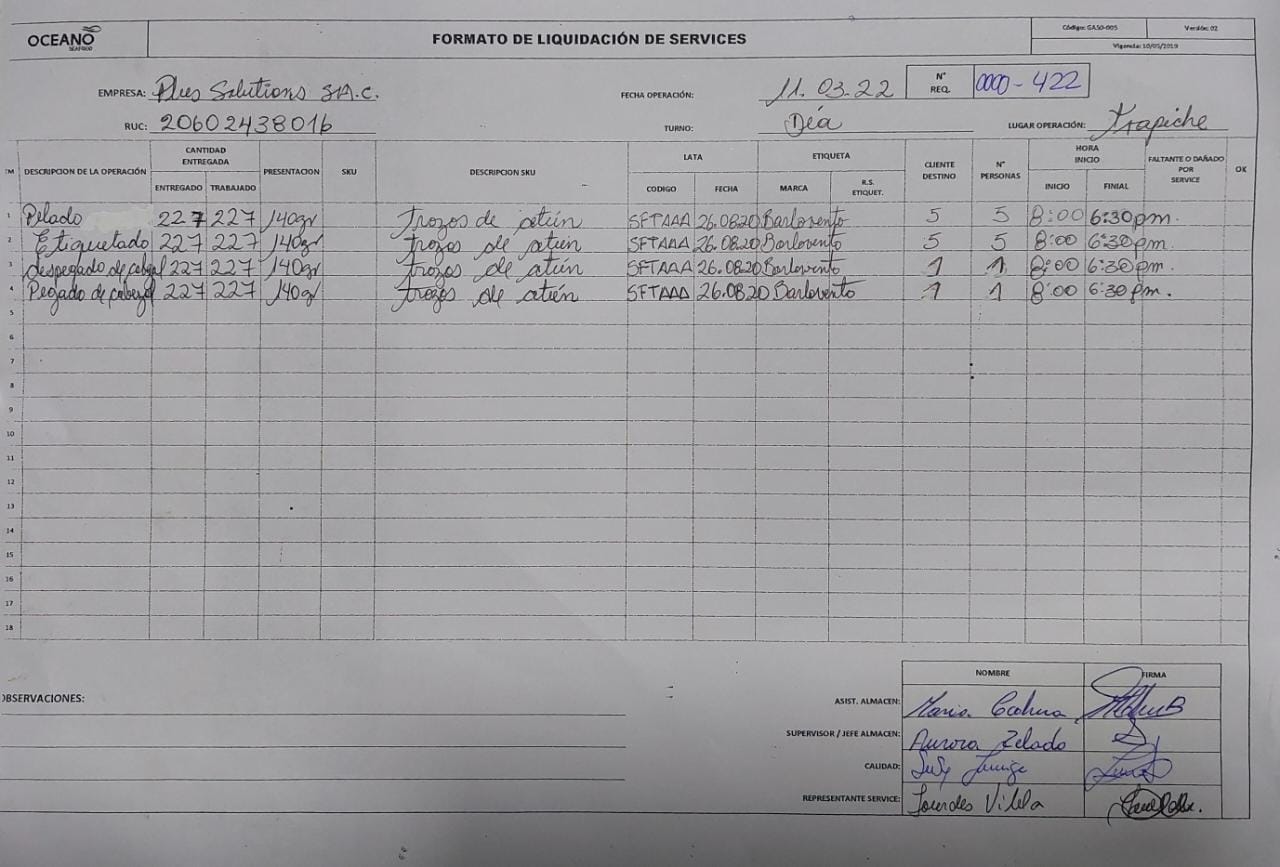 OCEANO
SEAFOOD
FORMATO DE LIQUIDACIÓN DE SERVICES
Código: GASO-005 Versión: 02
Vigencia: 10/05/2019
EMPRESA: Plus Solutions S.A.C.
FECHA OPERACIÓN: 11.03.22
N° REQ. 0000-422
RUC: 20602438016
TURNO: Día
LUGAR OPERACIÓN: Trapiche
CANTIDAD ENTREGADA LATA ETIQUETA HORA INICIO
DESCRIPCION DE LA OPERACIÓN ENTREGADO TRABAJADO PRESENTACION SKU DESCRIPCION SKU CODIGO FECHA MARCA R.S. ETIQUET. CLIENTE DESTINO N° PERSONAS INICIO FINIAL FALTANTE O DAÑADO POR SERVICE OK
1 Pelado 227 227 140gr trozos de atún SFTAAA 26.08.20 Barlovento 5 5 8:00 6:30pm.
2 Etiquetado 227 227 140gr trozos de atún SFTAAA 26.08.20 Barlovento 5 5 8:00 6:30pm.
3 despegado de cabezal 227 227 140gr trozos de atún SFTAAA 26.08.20 Barlovento 1 1 8:00 6:30pm.
4 Pegado de cabezal 227 227 140gr trozos de atún SFTAAA 26.08.20 Barlovento 1 1 8:00 6:30pm.
5
6
7
8
9
10
11
12
13
14
15
16
17
18
NOMBRE FIRMA
OBSERVACIONES:
ASIST. ALMACEN: Maria
SUPERVISOR / JEFE ALMACEN: Aurora Zelado
CALIDAD:
REPRESENTANTE SERVICE: Lourdes Vilela